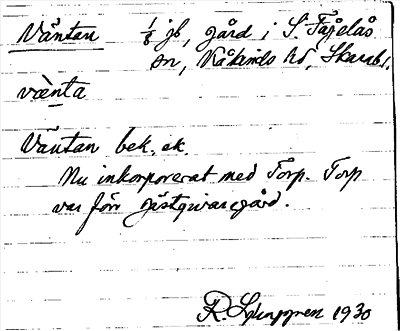 Väntan 1/8 jb, gård i S. Fågelås
sn, Kåkinds hd, Skarab.l.
vænta
Väntan bek. ek.
Nu inkorporerat med Torp. Torp
var förr gästgivaregård.
R. Ljunggren 1930